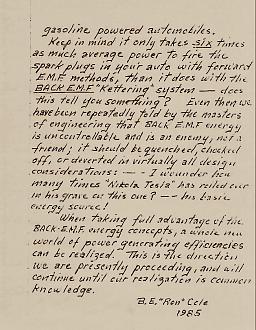 gasoline powered automobiles.
Keep in mind it only takes SIX times
as much average power to fire the
spark plugs in your auto with forward
E.M.F methods, than it does with the
BACK E.M.F "Kettering" system — does
this tell you something? Even then we
have been repeatedly told by the masters
of engineering that BACK EMF energy
is uncontrollable and is an enemy, not a
friend; it should be quenched, chocked
off, or diverted in virtually all design
considerations: — - I wounder how
many times "Nikola Tesla" has rolled over
in his grave on this one? - - his basic
energy source!
When taking full advantage of the
BACK-E.M.F. energy concepts, a whole new
world of power generating efficiencies
can be realized. This is the direction
we are presently proceeding, and will
continue until our realization is common
knowledge.
B.E. "Ron" Cole
1985